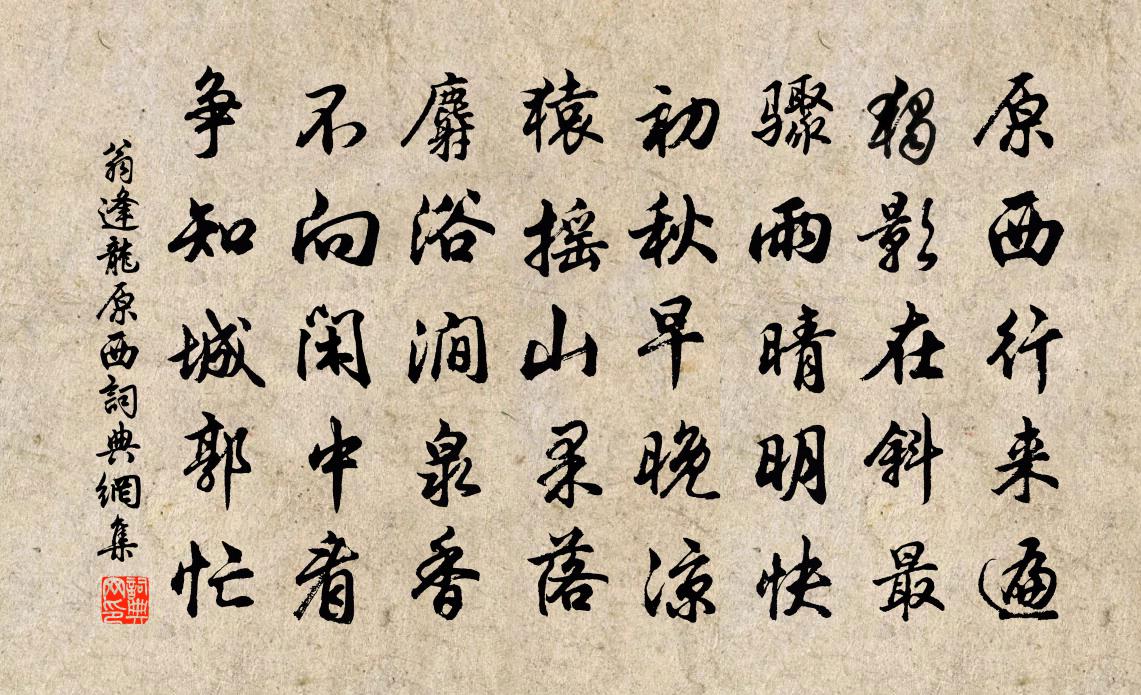 原西行来遍
獨影在斜最
骤雨晴明快
初秋早晚涼
猿摇山果落
麝浴澗泉香
不向閑中看
争知城郭忙
翁逢龍原西詞典網集
詞典网印